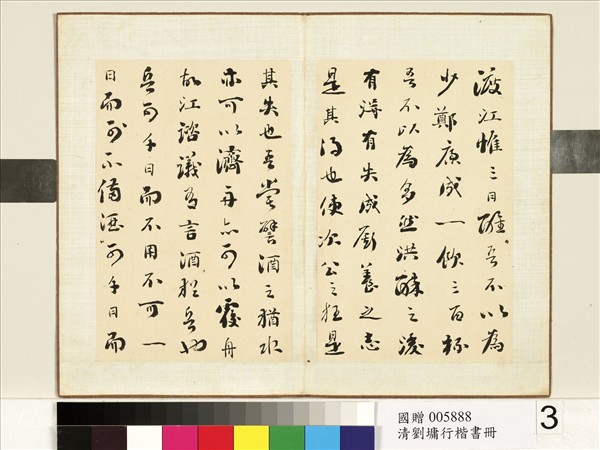 渡江惟三日醒吾不以為
少鄭康成一飲三百杯
吾不以為多然洪醉之後
有得有失成廝養之志
是其得也使次公之狂是
其失也吾嘗譬酒之猶水
亦可以濟舟亦可以覆舟
故江諮議有言酒猶兵也
兵可千日而不用不可一
日而可不備酒可千日而
國贈 005888
清劉墉行楷書冊
3